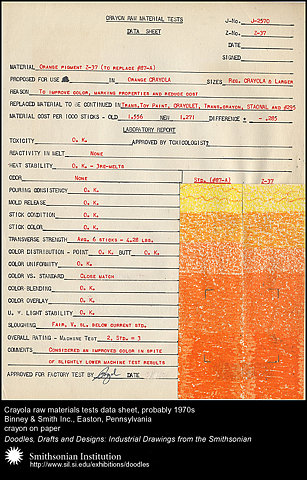 CRAYON RAW MATERIAL TESTS
DATA SHEET
J-No. J-2570
Z-No. Z-37
DATE
SIGNED
MATERIAL ORANGE PIGMENT Z-37 (TO REPLACE #87-A)
PROPOSED FOR USE IN ORANGE CRAYOLA SIZES REG. CRAYOLA & LARGER
REASON TO IMPROVE COLOR, MARKING PROPERTIES AND REDUCE COST
REPLACED MATERIAL TO BE CONTINUED IN TRANS.TOY PAINT, CRAYOLET, TRANS.CRAYON, STAONAL AND #295
MATERIAL COST PER 1000 STICKS - OLD 1.556 NEW 1.271 DIFFERENCE - .285
LABORATORY REPORT
TOXICITY O. K. APPROVED BY TOXICOLOGIST
REACTIVITY IN MELT NONE
HEAT STABILITY O. K. - 3RE-MELTS
ODOR NONE STD. (#87-A) Z-37
POURING CONSISTENCY O. K.
MOLD RELEASE O. K.
STICK CONDITION O. K.
STICK COLOR O. K.
TRANSVERSE STRENGTH AVG. 6 STICKS - 4.28 LBS.
COLOR DISTRIBUTION - POINT O. K. BUTT O. K.
COLOR UNIFORMITY O. K.
COLOR VS. STANDARD CLOSE MATCH
COLOR BLENDING O. K.
COLOR OVERLAY O. K.
U. V. LIGHT STABILITY O. K.
SLOUGHING FAIR, V. SL. BELOW CURRENT STD.
OVERALL RATING - MACHINE TEST 2, STD. - 3
COMMENTS CONSIDERED AN IMPROVED COLOR IN SPITE
OF SLIGHTLY LOWER MACHINE TEST RESULTS
APPROVED FOR FACTORY TEST BY DATE
Crayola raw materials tests data sheet, probably 1970s
Binney & Smith Inc., Easton, Pennsylvania
crayon on paper
Doodles, Drafts and Designs: Industrial Drawings from the Smithsonian
Smithsonian Institution
http://www.sil.si.edu/exhibitions/doodles